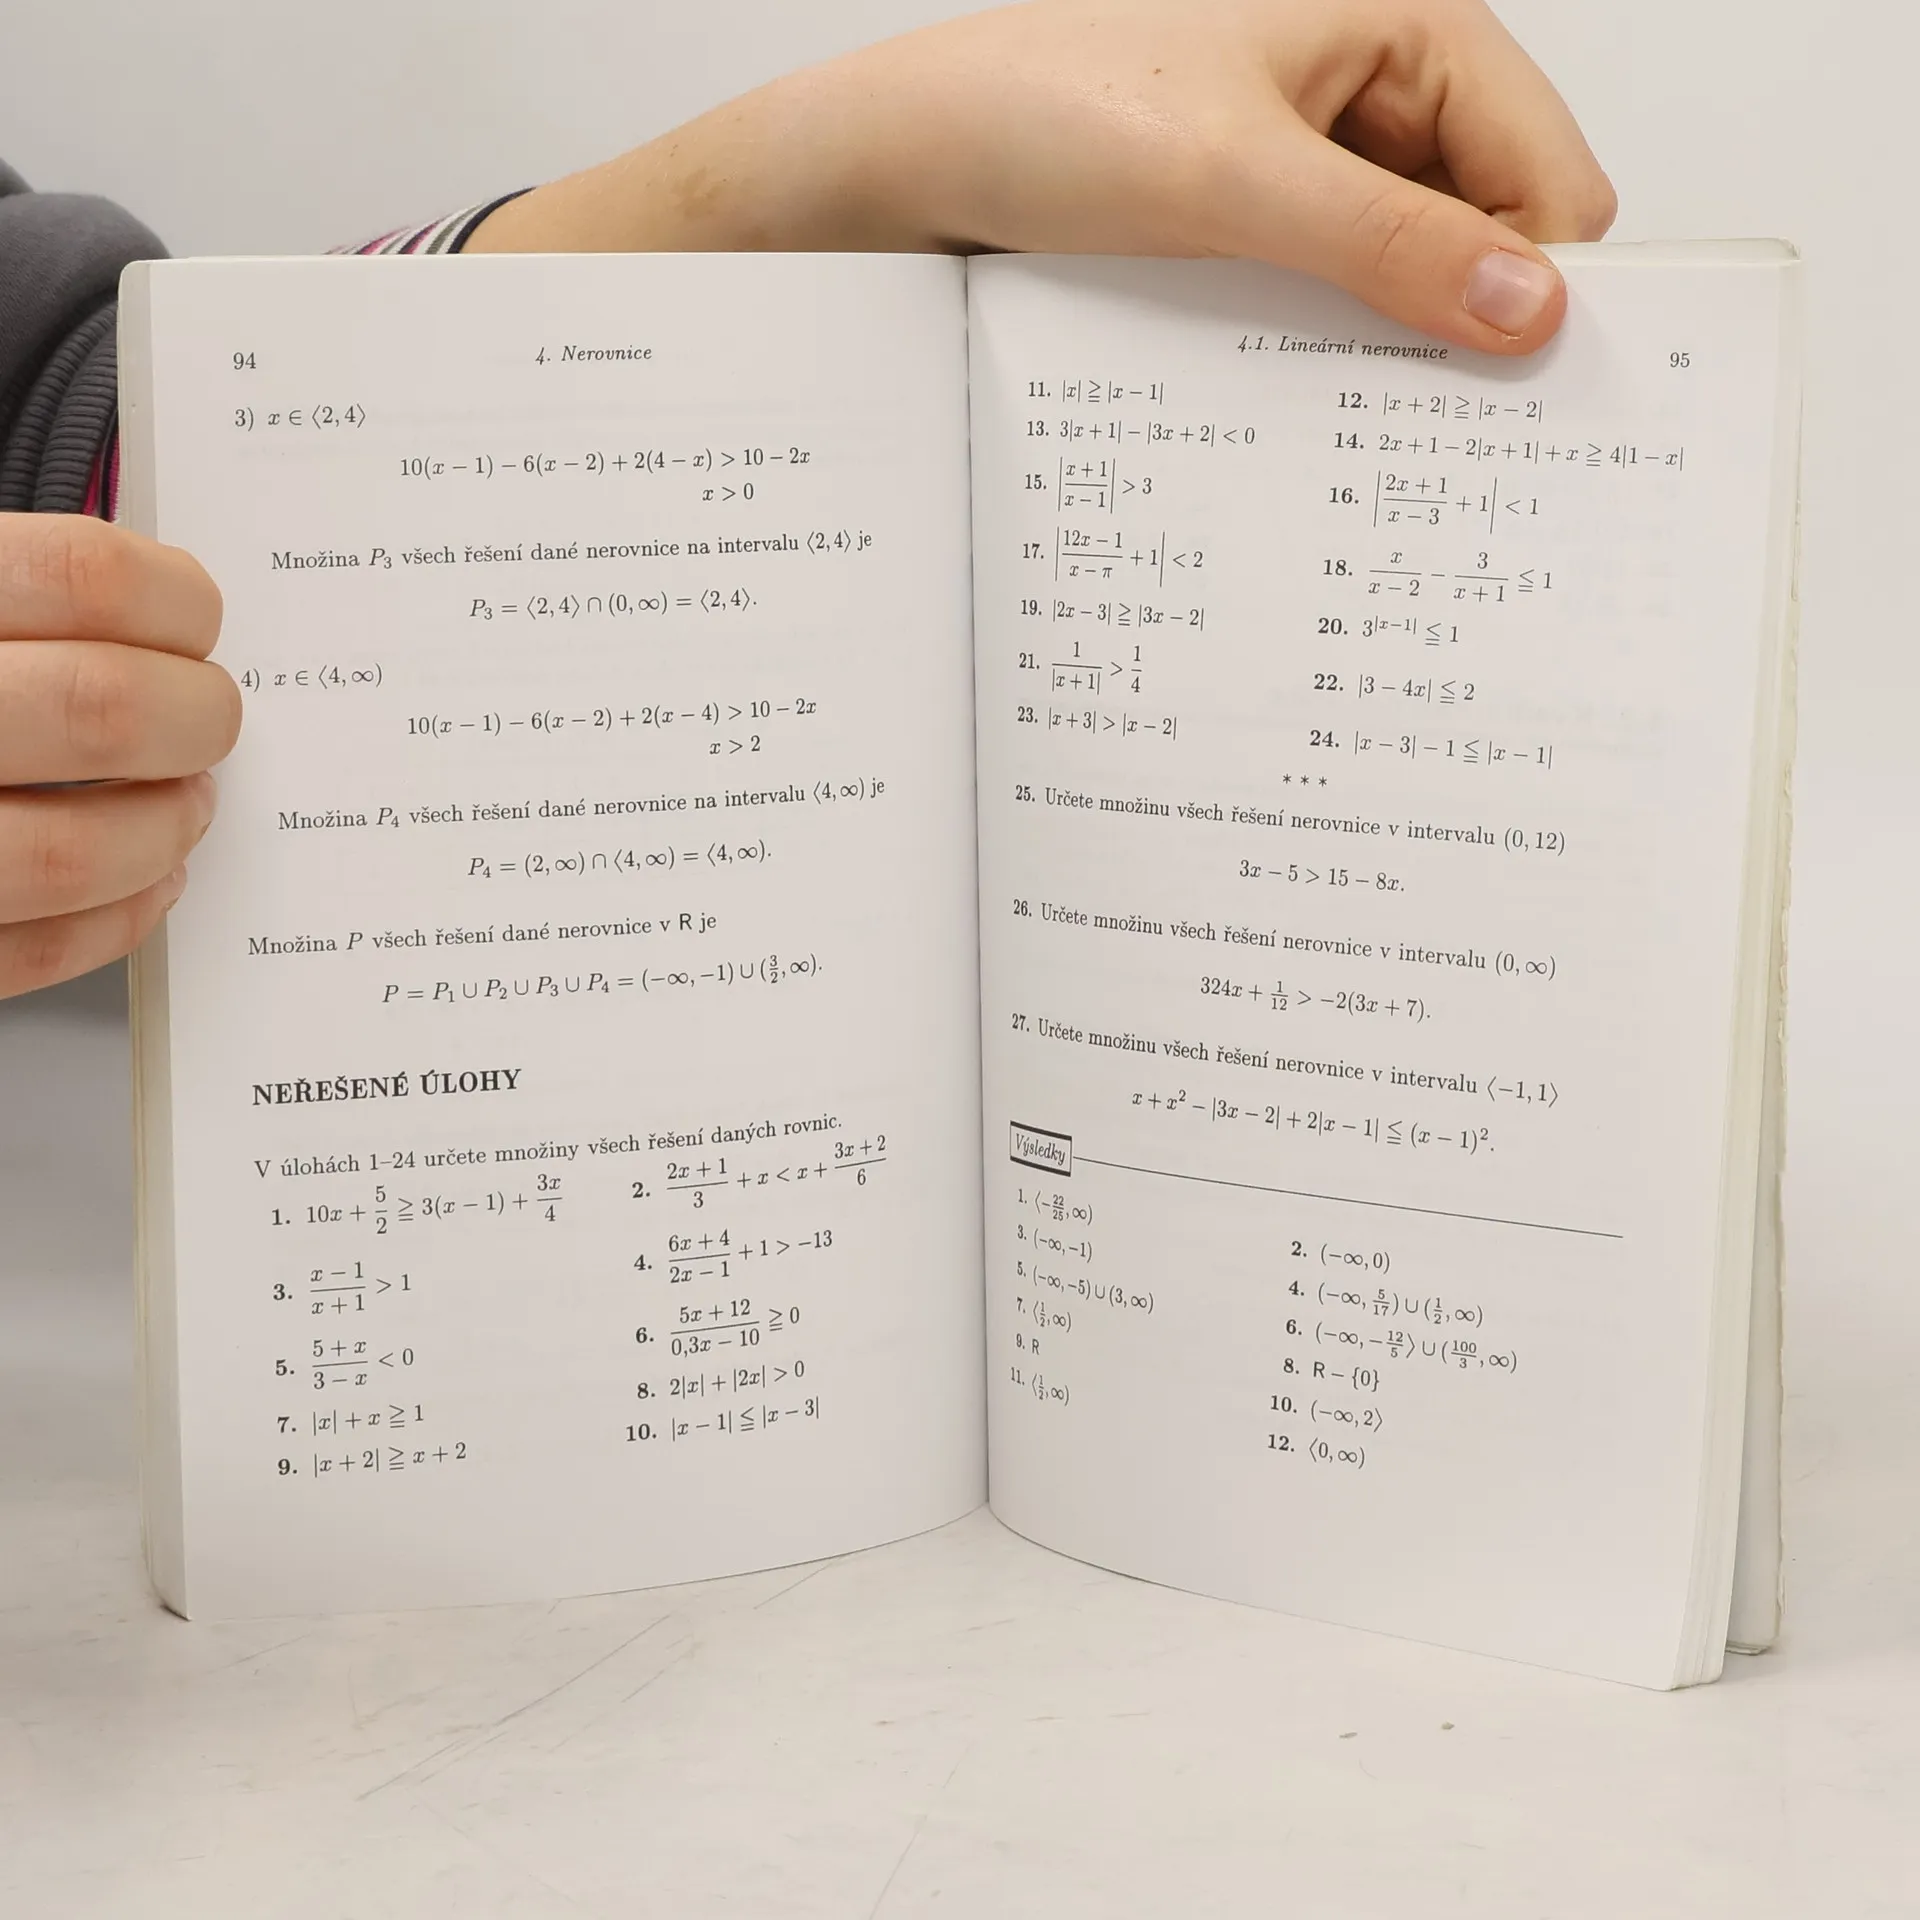 94 4. Nerovnice
3) x ∈ ⟨2, 4⟩
10(x − 1) − 6(x − 2) + 2(4 − x) > 10 − 2x
x > 0
Množina P₃ všech řešení dané nerovnice na intervalu ⟨2, 4⟩ je
P₃ = ⟨2, 4⟩ ∩ (0, ∞) = ⟨2, 4⟩.
4) x ∈ ⟨4, ∞)
10(x − 1) − 6(x − 2) + 2(x − 4) > 10 − 2x
x > 2
Množina P₄ všech řešení dané nerovnice na intervalu ⟨4, ∞) je
P₄ = (2, ∞) ∩ ⟨4, ∞) = ⟨4, ∞).
Množina P všech řešení dané nerovnice v R je
P = P₁ ∪ P₂ ∪ P₃ ∪ P₄ = (−∞, −1) ∪ (3/2, ∞).
NEŘEŠENÉ ÚLOHY
V úlohách 1–24 určete množiny všech řešení daných rovnic.
1. 10x + 5/2 ≧ 3(x − 1) + 3x/4 2. (2x + 1)/3 + x < x + (3x + 2)/6
3. (x − 1)/(x + 1) > 1 4. (6x + 4)/(2x − 1) + 1 > −13
5. (5 + x)/(3 − x) < 0 6. (5x + 12)/(0,3x − 10) ≧ 0
7. |x| + x ≧ 1 8. 2|x| + |2x| > 0
9. |x + 2| ≧ x + 2 10. |x − 1| ≦ |x − 3|
4.1. Lineární nerovnice 95
11. |x| ≧ |x − 1| 12. |x + 2| ≧ |x − 2|
13. 3|x + 1| − |3x + 2| < 0 14. 2x + 1 − 2|x + 1| + x ≧ 4|1 − x|
15. |(x + 1)/(x − 1)| > 3 16. |(2x + 1)/(x − 3) + 1| < 1
17. |(12x − 1)/(x − π) + 1| < 2 18. x/(x − 2) − 3/(x + 1) ≦ 1
19. |2x − 3| ≧ |3x − 2| 20. 3^|x−1| ≦ 1
21. 1/|x + 1| > 1/4 22. |3 − 4x| ≦ 2
23. |x + 3| > |x − 2| 24. |x − 3| − 1 ≦ |x − 1|
* * *
25. Určete množinu všech řešení nerovnice v intervalu (0, 12)
3x − 5 > 15 − 8x.
26. Určete množinu všech řešení nerovnice v intervalu (0, ∞)
324x + 1/12 > −2(3x + 7).
27. Určete množinu všech řešení nerovnice v intervalu ⟨−1, 1⟩
x + x² − |3x − 2| + 2|x − 1| ≦ (x − 1)².
Výsledky
1. ⟨−22/25, ∞) 2. (−∞, 0)
3. (−∞, −1) 4. (−∞, 5/17) ∪ (1/2, ∞)
5. (−∞, −5) ∪ (3, ∞) 6. (−∞, −12/5⟩ ∪ (100/3, ∞)
7. ⟨1/2, ∞) 8. R − {0}
9. R 10. (−∞, 2⟩
11. ⟨1/2, ∞) 12. ⟨0, ∞)